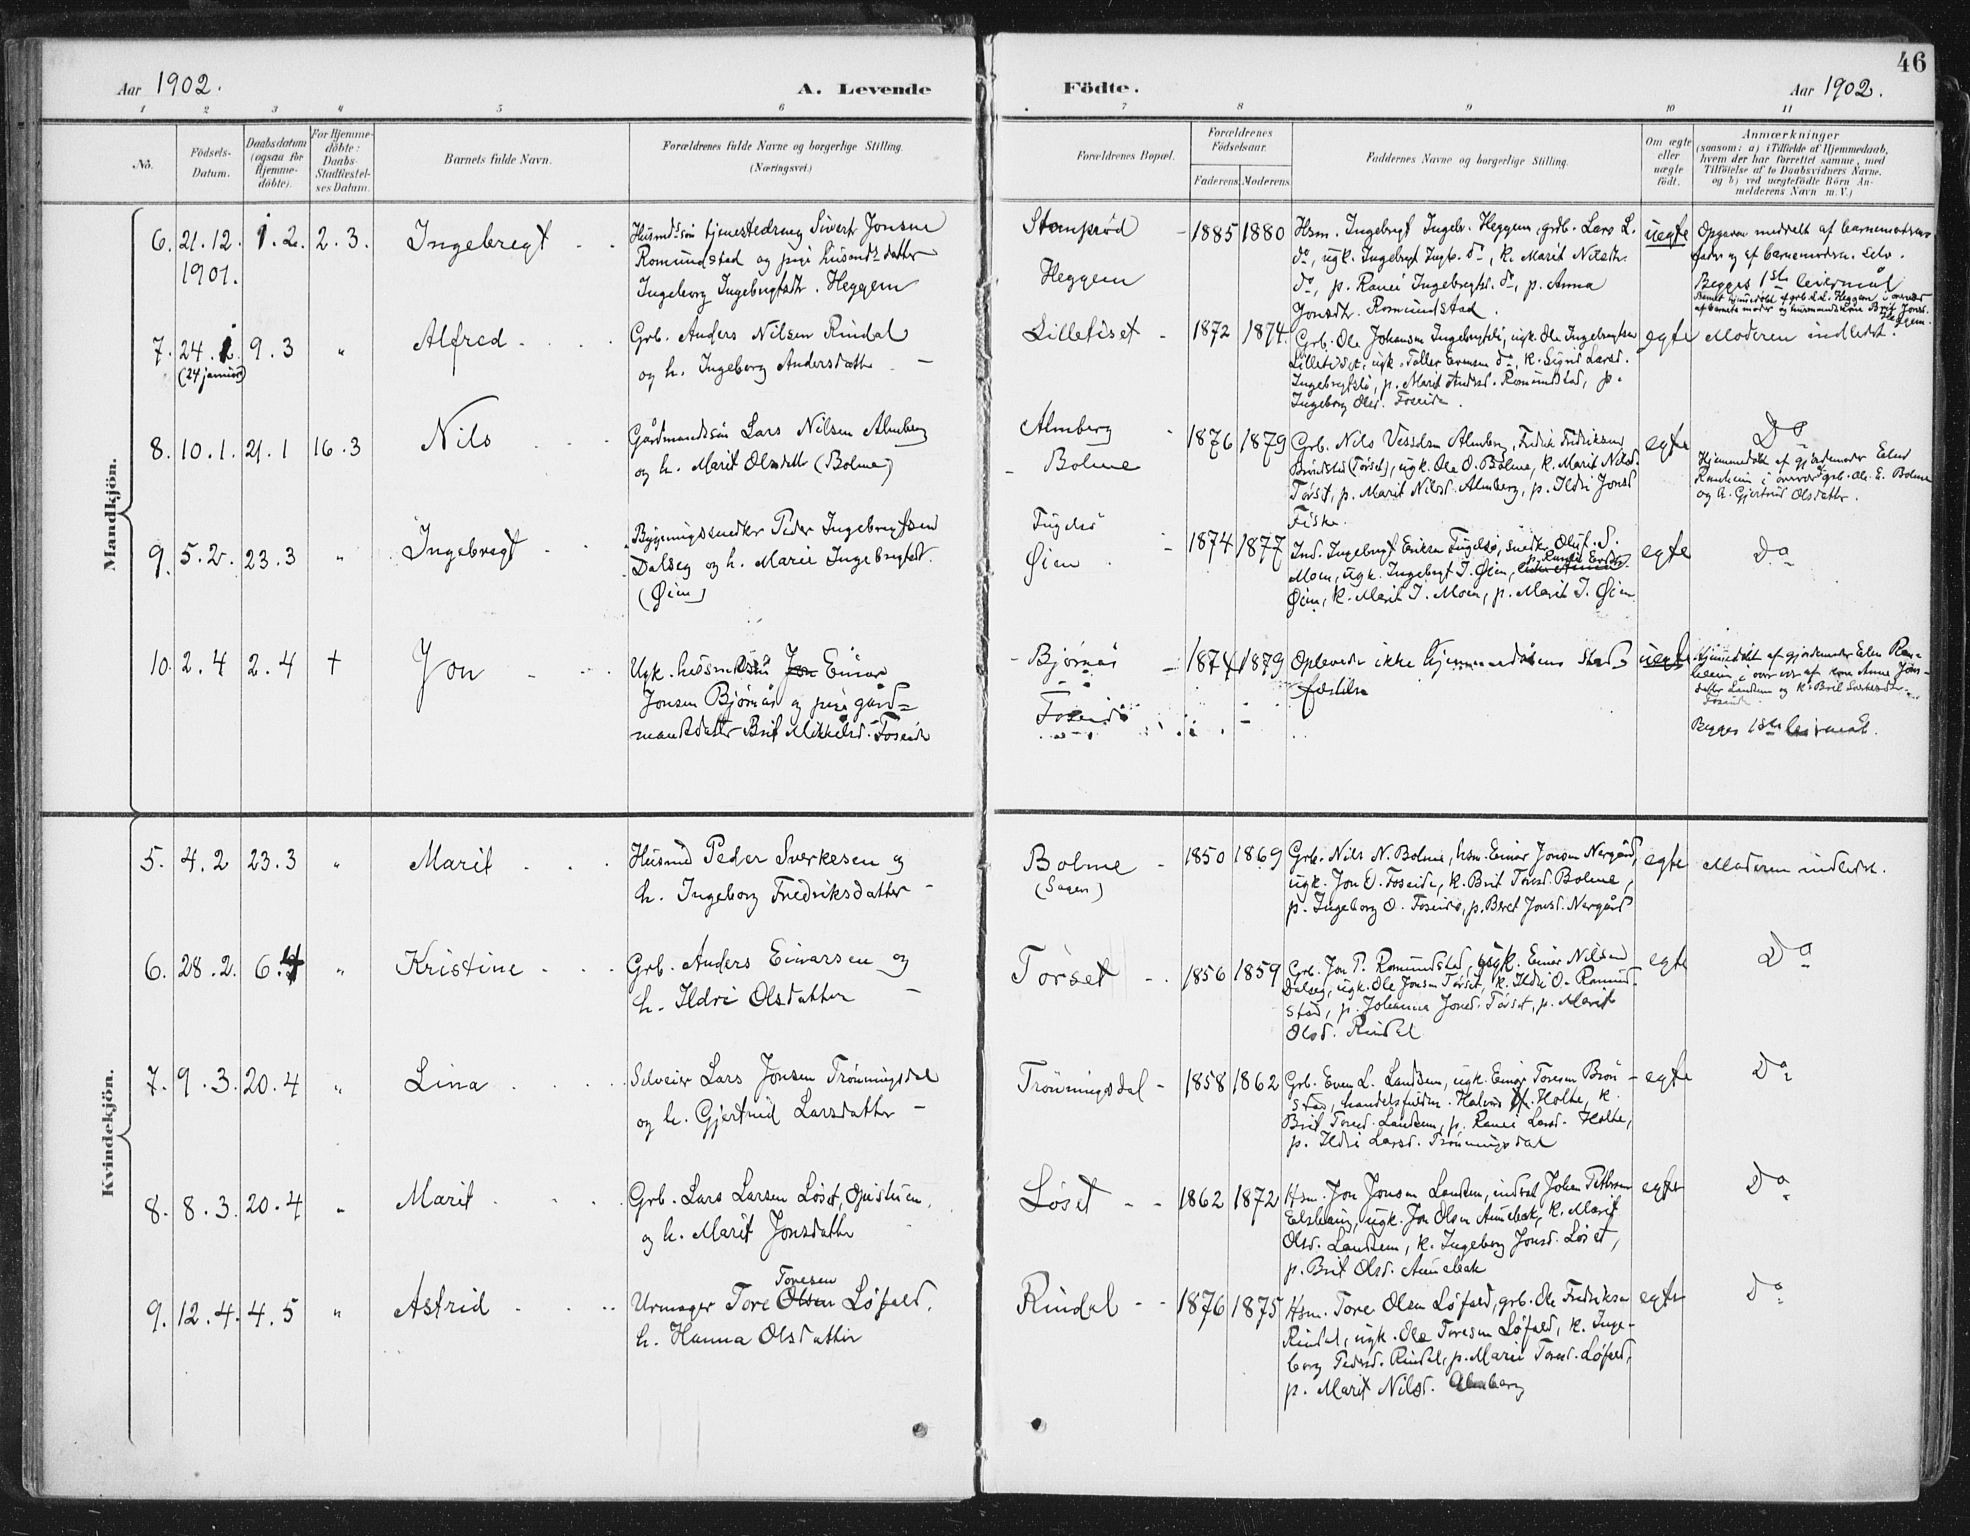 46
Aar 1902.
A. Levende
Födte.
Aar 1902.
1 2 3 4 5 6 7 8 9 10 11
No.
Födsels-Datum.
Daabsdatum (ogsaa for Hjemme-döbte).
For Hjemme-döbte: Daabs-Stadfæstel-ses Datum.
Barnets fulde Navn.
Forældrenes fulde Navne og borgerlige Stilling. (Næringsvei.)
Forældrenes Bopæl.
Forældrenes Födselsaar.
Faderens Moderens
Faddernes Navne og borgerlige Stilling.
Om ægte eller uægte födt.
Anmærkninger
(saasom: a) i Tilfælde af Hjemmedaab, hvem der har forrettet samme, med Tilföielse af to Daabsvidners Navne, og b) ved uægtefödte Börn An-melderens Navn m. V.)
Mandkjön.
6. 21.12. 1901. 1.2. 2.3. Ingebregt
Husmdssön tjenestedreng Sivert Jonsen
Romundstad og pige husmdsdatter
Ingeborg Ingebrigtsdtr. Heggem
Heggem
1885 1880
Hsm. Ingebrigt Ingebr. Heggem, grb. Lars L.
do, ugk. Ingebrigt Ingb. do, k. Marit Nilsdtr.
do, p. Ranei Ingebrigtsd. do, p. Anna
Jonsdt. Romundstad.
uegte
Opgaven meddelt af barnemoderens
fader og af barnemoderen selv.
Begges 1ste leiermål
7. 24.1. (24 januar) 9.3 " Alfred
Grb. Anders Nilsen Rindal
og h. Ingeborg Andersdatter
Lilletiset
1872 1874.
Grb. Ole Johansen Ingebrigtsli, ugk. Ole Ingebrigtsen
Lilletiset, ugk. Toller Evensen do, k. Sigrid Larsd.
Ingebrigtsli, p. Marit Andersd. Romundstad, p.
Ingeborg Olsd. Foseide.
egte
Moderen indledet.
8. 10.1. 21.1 16.3 Nils
Gårdmandssön Lars Nilsen Almberg
og h. Marit Olsdatter (Bolme)
Almberg
Bolme
1876 1879
Grb. Nils Almberg, Fredrik Fredriksen
(Tørset), ugk. Ole O. Bolme, k. Marit Nilsd.
Tørset, p. Marit Nilsd. Almberg, p. Ildri Jonsd
Fiske.
egte
Do
Hjemmedöbt af gjordemoder Eelen
Ranheim i overvær af grb. Ole E. Bolme
og h. Gjertrud Olsdatter.
9. 5.2. 23.3 " Ingebregt
Bygningssnedker Peder Ingebregtsen
Dalseg og h. Marie Ingebrigtsd.
(Øien)
Fugelsö
Øien
1874 1877
Ind. Ingebrigt Eriksen Fugelsö, snedker Oluf S.
Moen, ugk. Ingebregt I. Øien,
Øien, k. Marit I. Moen, p. Marit I. Øien
egte
Do
10. 2.4 2.4 + Jon
Ugk. husmdssön Jon Einar
Jonsen Bjørnås og pige gård=
mandsdatter Brit Mikkelsd. Foseide
Bjørnås
Foseide
1874 1879
Oplevede ikke hjemmedåbens Stad-
fæstelse
uegte
Hjemmedöbt af gjordemoder Elen Ran-
heim i overvær af kone Anne Jons-
datter Landsem og k. Brit Sverkesdtr.
Foseide.
Begges 1ste leiermål.
Kvindekjön.
5. 4.2 23.3 " Marit
Husmd Peder Sverkesen og
h. Ingeborg Fredriksdatter
Bolme
(Sagen)
1850 1869
Grb. Nils N. Bolme, hsm. Einar Jonsen Nergård,
ugk. Jon O. Foseide, k. Brit Toresd. Bolme,
p. Ingeborg O. Foseide, p. Beret Jonsd. Nergård
egte
Moderen indledet.
6. 28.2. 6.4 " Kristine
Grb. Anders Einarsen og
h. Ildri Olsdatter
Tørset
1856 1859
Grb. Jon P. Romundstad, ugk. Einar Nilsen
Dalseg, ugk. Ole Jonsen Tørset, k. Ildri O. Romund-
stad, p. Johanna Jonsd. Tørset, p. Marit
Olsd. Rindal
egte
Do
7. 9.3. 20.4 " Lina
Selveier Lars Jonsen Trønningsdal
og h. Gjertrud Larsdatter
Trønningsdal
1858 1862
Grb. Even L. Landsem, ugk. Einar Toresen Brøn-
stad, handelsfuldm. Halvor H. Holte, k.
Brit Toresd. Landsem, p. Ranei Larsd. Holte,
p. Ildri Larsd. Trønningsdal
egte
Do
8. 8.3. 20.4 " Marit
Grb. Lars Larsen Løset,
og h. Marit Jonsdatter
Løset
1862 1872
Hsm. Jon Jonsen Landsem, Johan Pettersen
ugk. Jon Olsen Aunebak, k. Marit
Olsd. Landsem, k. Ingeborg Jonsd. Løset,
p. Brit Olsd. Aunebak
egte
Do
9. 12.4. 4.5 " Astrid
Urmager Tore Olsen Toresen Løfald.
h. Hanna Olsdatter
Rindal
1876 1875
Hsm. Tore Olsen Løfald, grb. Ole Fredriksen
Rindal, ugk. Ole Toresen Løfald, k. Inge-
borg Pedersd. Rindal, p. Marie Toresd. Løfald,
p. Marit Nilsd. Almberg
egte
Do